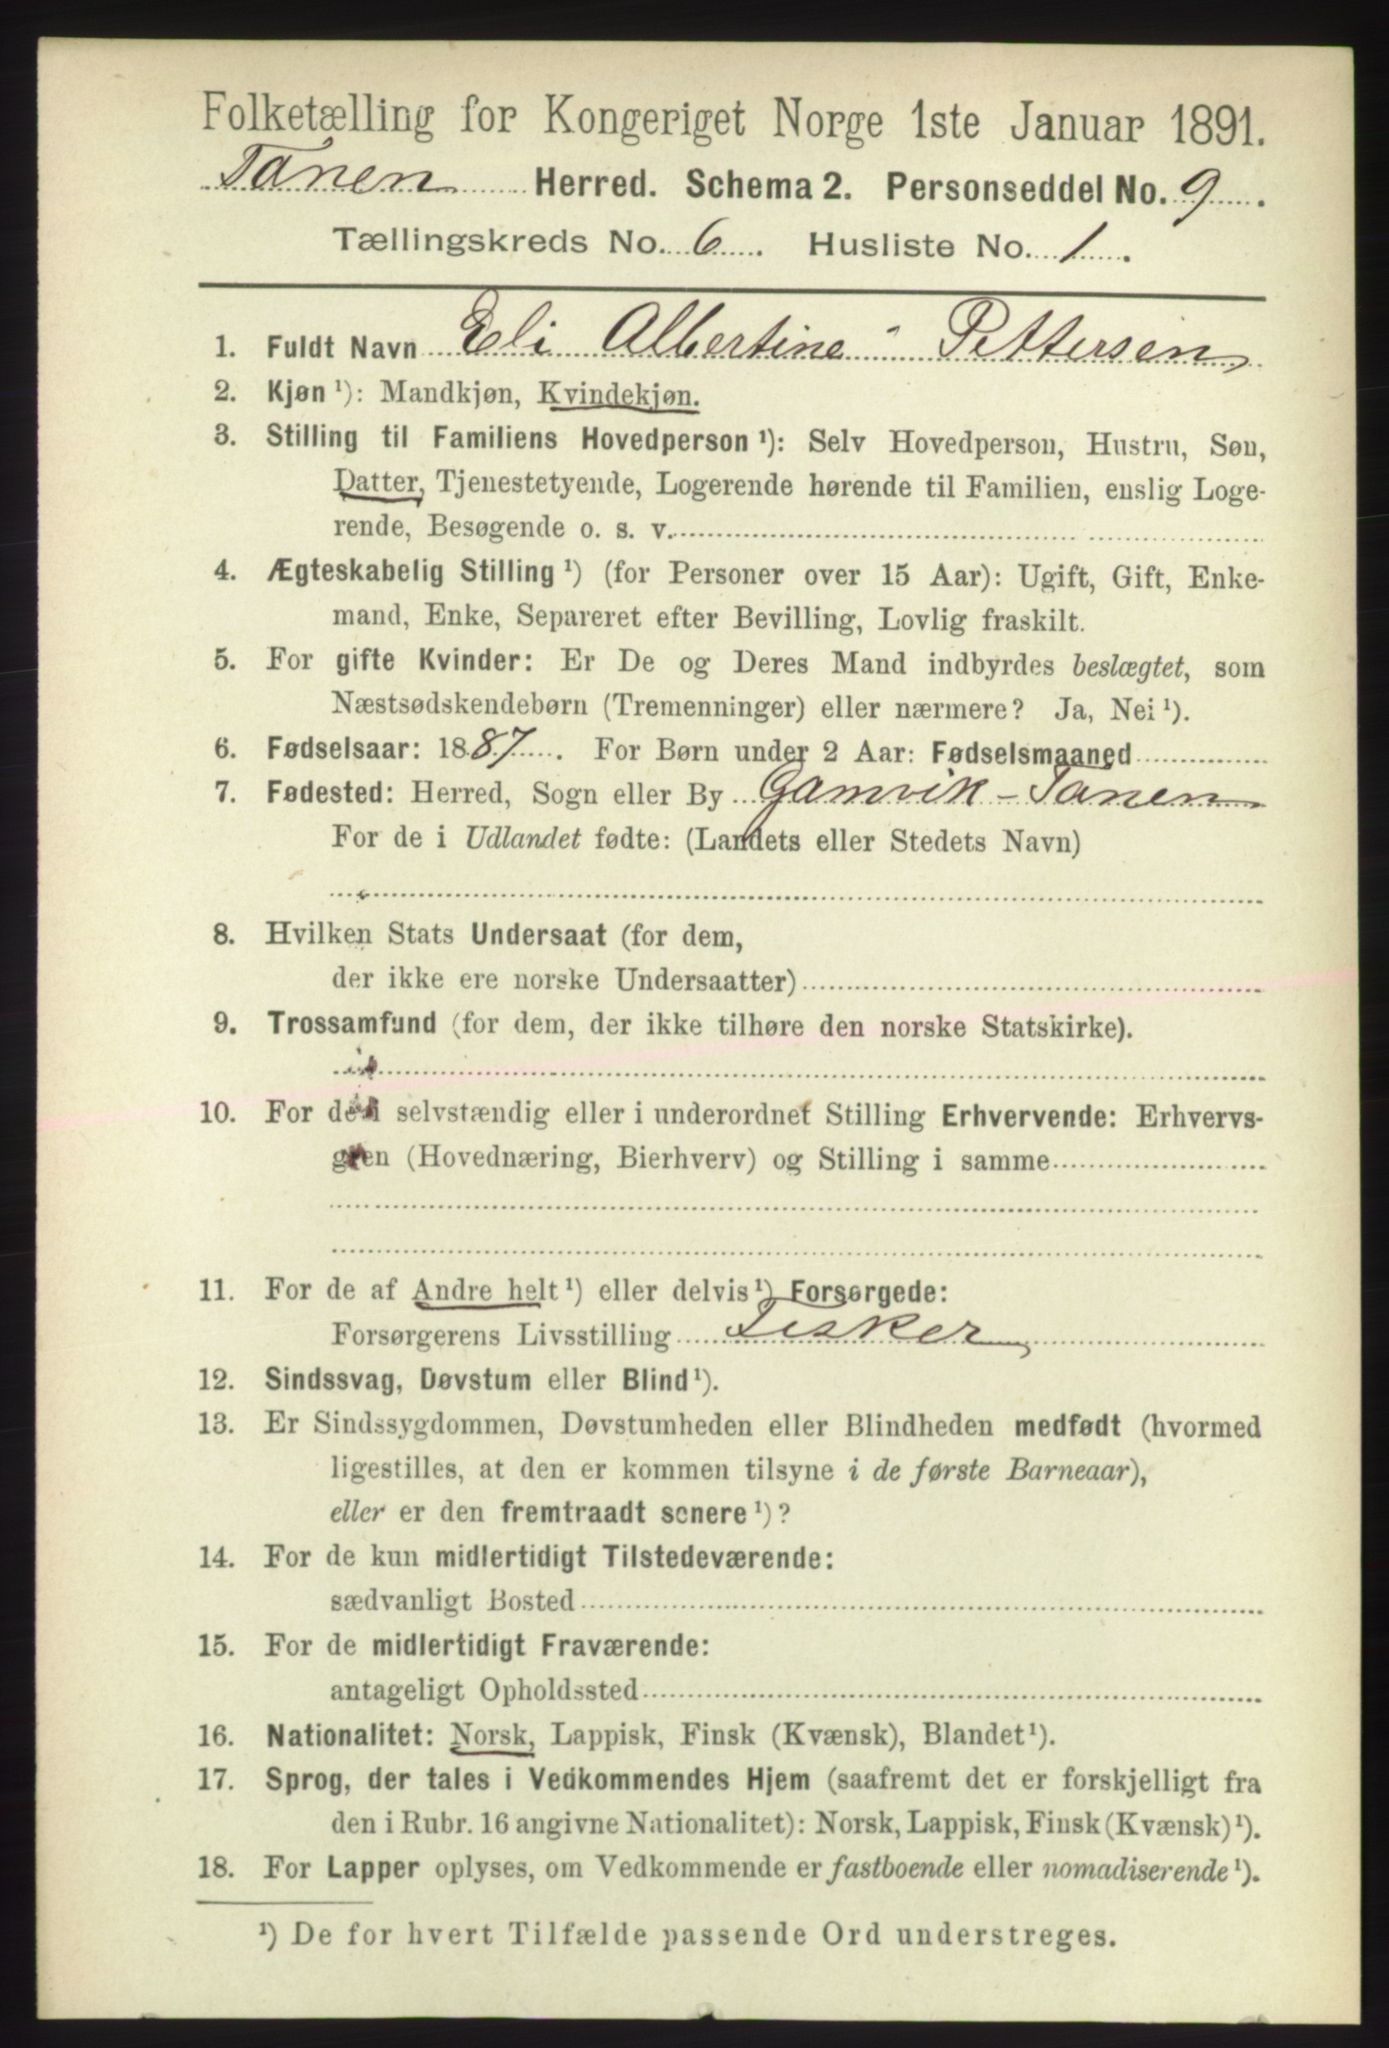 Folketælling for Kongeriget Norge 1ste Januar 1891.
Tanen Herred. Schema 2. Personseddel No. 9.
Tællingskreds No. 6. Husliste No. 1.
1. Fuldt Navn Eli Albertine Pettersen
2. Kjøn ¹): Mandkjøn, Kvindekjøn.
3. Stilling til Familiens Hovedperson ¹): Selv Hovedperson, Hustru, Søn,
Datter, Tjenestetyende, Logerende hørende til Familien, enslig Loge-
rende, Besøgende o. s. v.
4. Ægteskabelig Stilling ¹) (for Personer over 15 Aar): Ugift, Gift, Enke-
mand, Enke, Separeret efter Bevilling, Lovlig fraskilt.
5. For gifte Kvinder: Er De og Deres Mand indbyrdes beslægtet, som
Næstsødskendebørn (Tremenninger) eller nærmere? Ja, Nei ¹).
6. Fødselsaar: 1887. For Børn under 2 Aar: Fødselsmaaned
7. Fødested: Herred, Sogn eller By Gamvik - Tanen
For de i Udlandet fødte: (Landets eller Stedets Navn)
8. Hvilken Stats Undersaat (for dem,
der ikke ere norske Undersaatter)
9. Trossamfund (for dem, der ikke tilhøre den norske Statskirke).
10. For de i selvstændig eller i underordnet Stilling Erhvervende: Erhvervs-
gren (Hovednæring, Bierhverv) og Stilling i samme
11. For de af Andre helt ¹) eller delvis ¹) Forsørgede:
Forsørgerens Livsstilling Fisker
12. Sindssvag, Døvstum eller Blind ¹).
13. Er Sindssygdommen, Døvstumheden eller Blindheden medfødt (hvormed
ligestilles, at den er kommen tilsyne i de første Barneaar),
eller er den fremtraadt senere ¹)?
14. For de kun midlertidigt Tilstedeværende:
sædvanligt Bosted
15. For de midlertidigt Fraværende:
antageligt Opholdssted
16. Nationalitet: Norsk, Lappisk, Finsk (Kvænsk), Blandet ¹).
17. Sprog, der tales i Vedkommendes Hjem (saafremt det er forskjelligt fra
den i Rubr. 16 angivne Nationalitet): Norsk, Lappisk, Finsk (Kvænsk) ¹).
18. For Lapper oplyses, om Vedkommende er fastboende eller nomadiserende ¹).
¹) De for hvert Tilfælde passende Ord understreges.